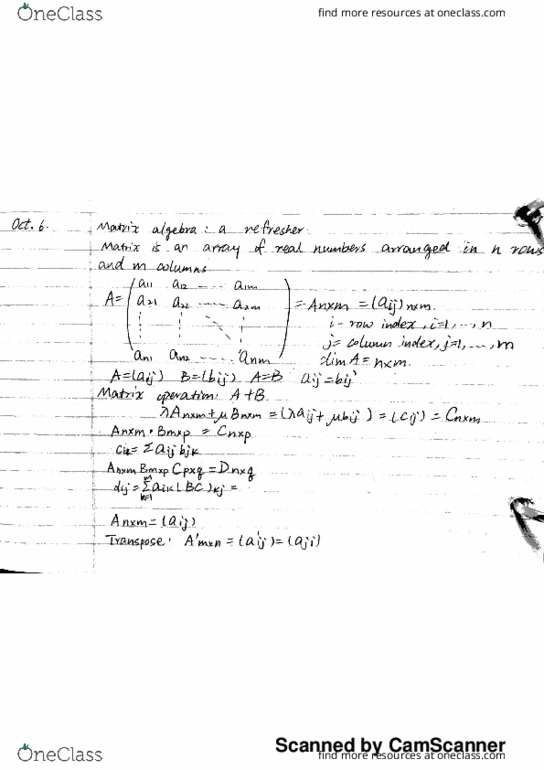 OneClass
find more resources at oneclass.com
Oct. 6.
Matrix algebra: a refresher.
Matrix is an array of real numbers arranged in n rows
and m columns
A = ( a11 a12 ---- a1m
a21 a22 ---- a2m
an1 an2 ---- anm ) = Anxm = (aij)nxm.
i - row index, i=1, ..., n
j = column index, j=1, ..., m
dim A = nxm.
A=(aij) B=(bij) A=B aij=bij
Matrix operation: A+B
λAnxm + μBnxm = (λaij + μbij) = (cij) = Cnxm
Anxm · Bmxp = Cnxp
cik = Σ aij bjk
Anxm Bmxp Cpxq = Dnxq
dij = Σ aik (BC)kj =
k=1
Anxm = (aij)
Transpose: A'mxn = (a'ij) = (aji)
Scanned by CamScanner
OneClass
find more resources at oneclass.com